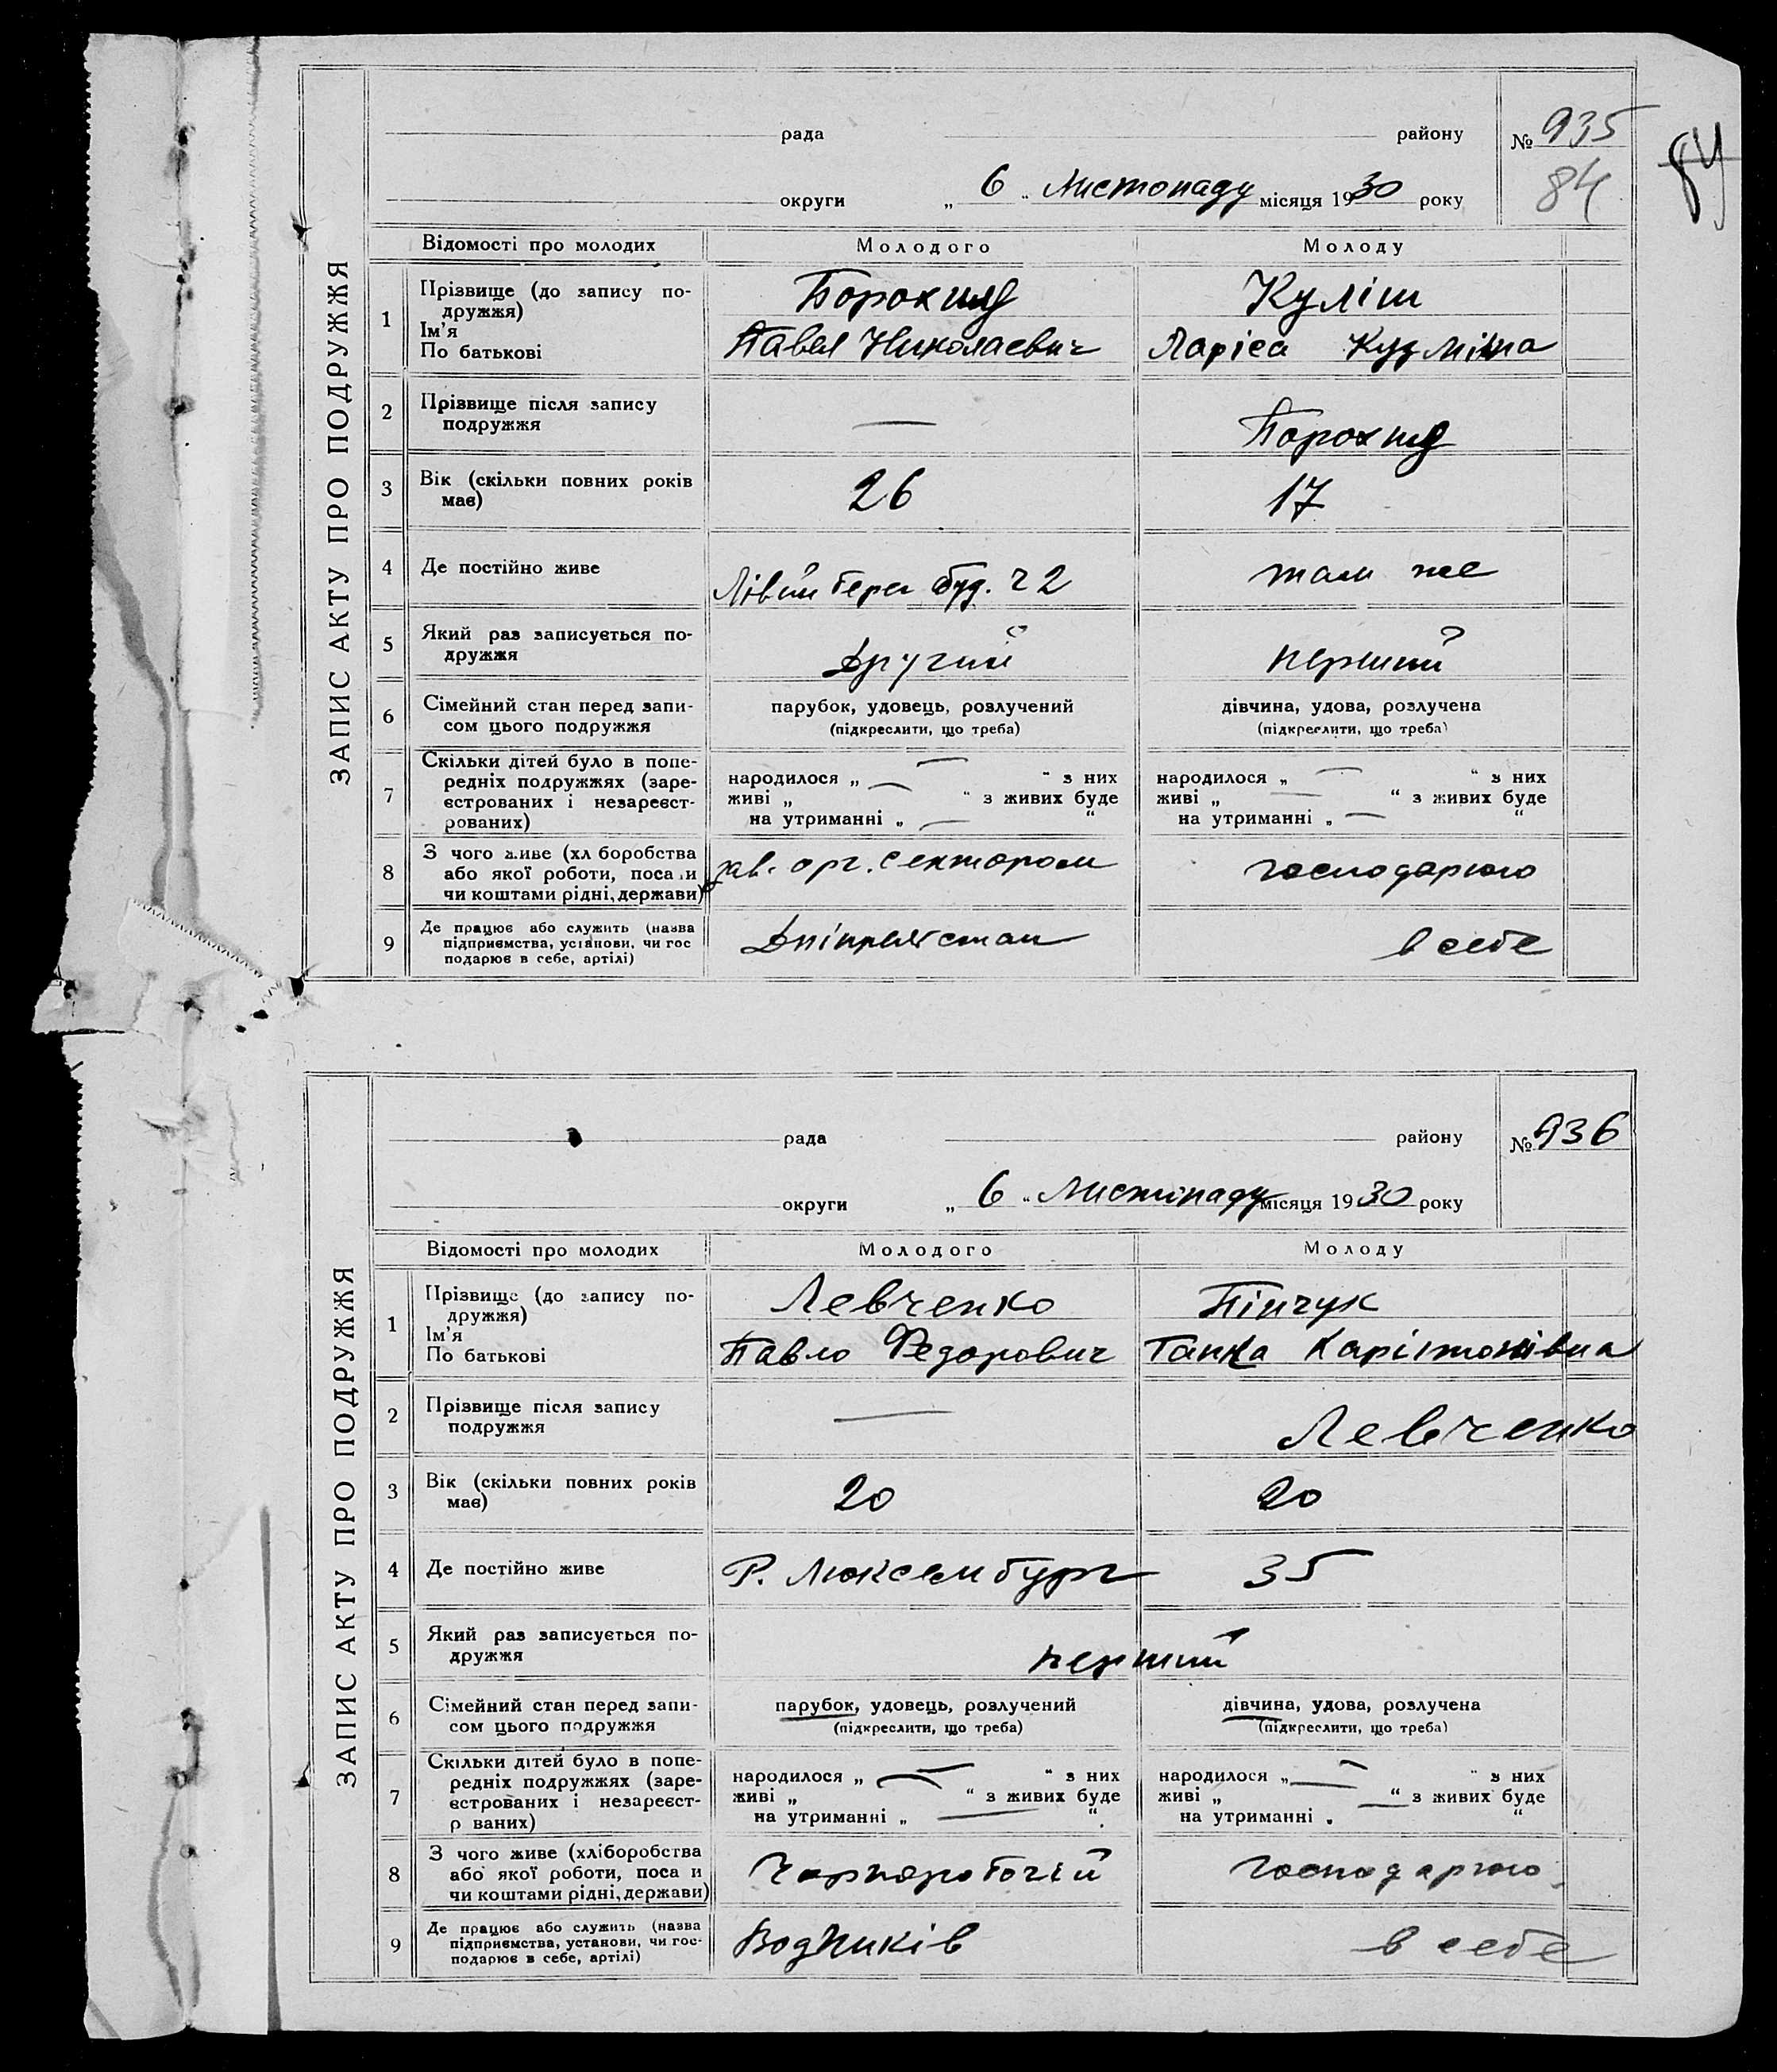 ЗАПИС АКТУ ПРО ПОДРУЖЖЯ
рада району № 935
84
84
округи „ 6 “ Листопаду місяця 1930 року
Відомості про молодих Молодого Молоду
1 Прізвище (до запису по-
дружжя)
Ім'я
По батькові
Куліш
Павел Николаевич Ларіса Кузмінма
2 Прізвище після запису
подружжя
—
3 Вік (скільки повних років
має)
26 17
4 Де постійно живе
Лівий берег буд. ч 2 там же
5 Який раз записується по-
дружжя
Другий перший
6 Сімейний стан перед запи-
сом цього подружжя
парубок, удовець, розлучений
(підкреслити, що треба)
дівчина, удова, розлучена
(підкреслити, що треба)
7 Скільки дітей було в попе-
редніх подружжях (заре-
єстрованих і незареєст-
рованих)
народилося „ — “ з них
живі „ — “ з живих буде
на утриманні „ — “
народилося „ — “ з них
живі „ — “ з живих буде
на утриманні „ — “
8 З чого живе (хл боробства
або якої роботи, поса и
чи коштами рідні, держави)
зав. орг. сектором господарюю
9 Де працює або служить (назва
підприємства, установи, чи гос
подарює в себе, артілі)
в себе
ЗАПИС АКТУ ПРО ПОДРУЖЖЯ
рада району № 936
округи „ 6 “ Листопаду місяця 1930 року
Відомості про молодих Молодого Молоду
1 Прізвище (до запису по-
дружжя)
Ім'я
По батькові
Левченко Пінчук
Павло Федорович Ганна Харітонівна
2 Прізвище після запису
подружжя
— Левченко
3 Вік (скільки повних років
має)
20 20
4 Де постійно живе
Р. Люксембург 35
5 Який раз записується по-
дружжя
перший
6 Сімейний стан перед запи-
сом цього подружжя
парубок, удовець, розлучений
(підкреслити, що треба)
дівчина, удова, розлучена
(підкреслити, що треба)
7 Скільки дітей було в попе-
редніх подружжях (заре-
єстрованих і незареєст-
р ваних)
народилося „ — “ з них
живі „ — “ з живих буде
на утриманні „ — “
народилося „ — “ з них
живі „ — “ з живих буде
на утриманні „ “
8 З чого живе (хліборобства
або якої роботи, поса и
чи коштами рідні, держави)
Чорноробочій господарюю
9 Де працює або служить (назва
підприємства, установи, чи гос-
подарює в себе, артілі)
Водників в себе